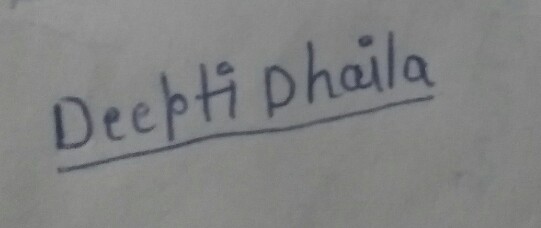 Deepti Dhaila